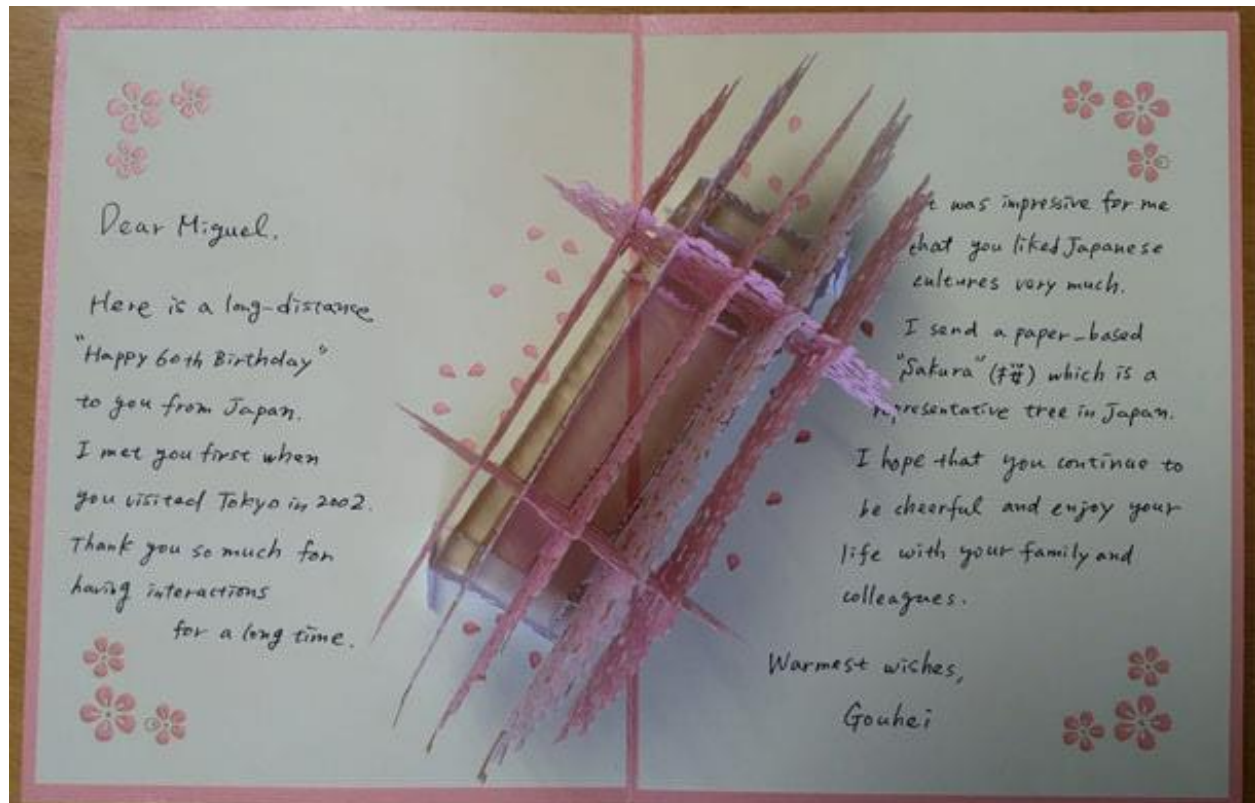 Dear Miguel.
Here is a long-distance
"Happy 60th Birthday"
to you from Japan.
I met you first when
you visited Tokyo in 2002.
Thank you so much for
having interactions
for a long time.
was impressive for me
that you liked Japanese
cultures very much.
I send a paper-based
"Sakura" (桜) which is a
representative tree in Japan.
I hope that you continue to
be cheerful and enjoy your
life with your family and
colleagues.
Warmest wishes,
Gouhei